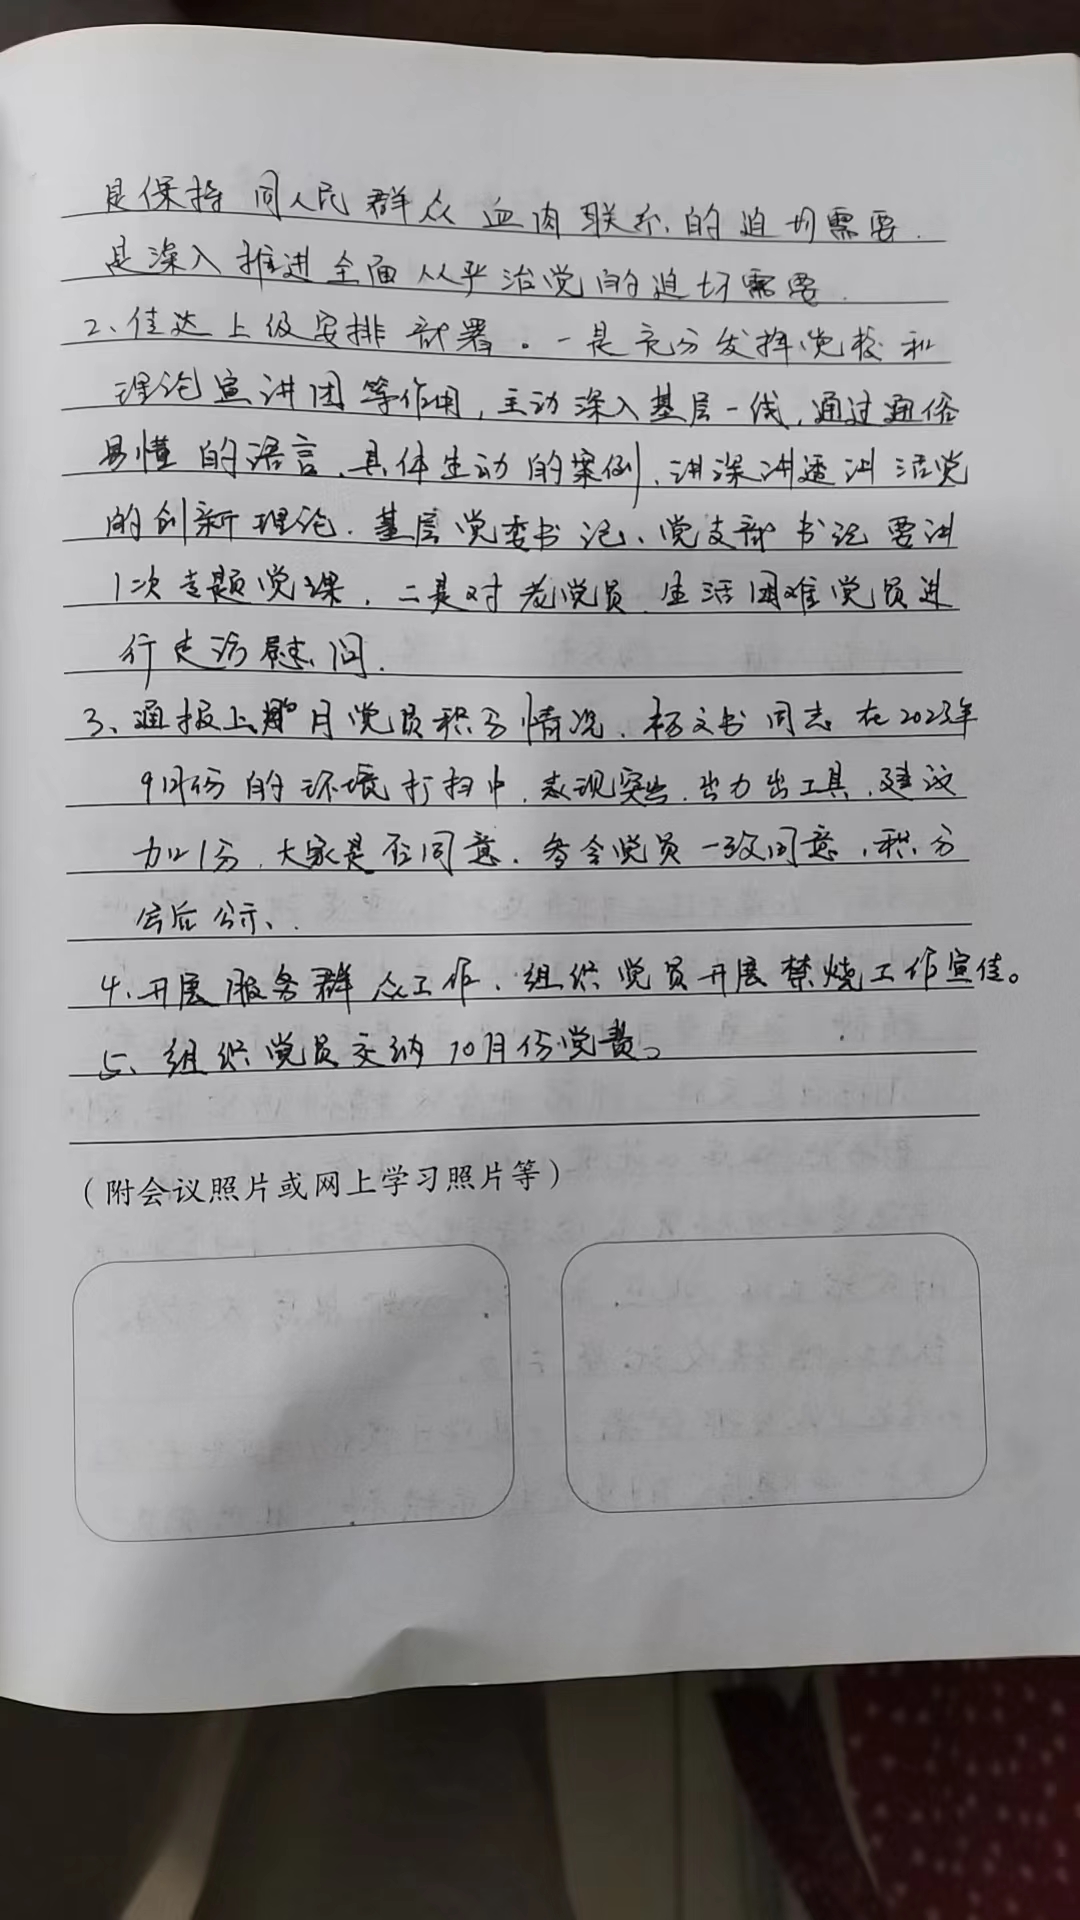 是保持同人民群众血肉联系的迫切需要.
是深入推进全面从严治党的迫切需要.
2、传达上级安排部署。一是充分发挥党校和
理论宣讲团等作用,主动深入基层一线,通过通俗
易懂的语言、具体生动的案例,讲深讲透讲活党
的创新理论.基层党委书记、党支部书记要讲
1次专题党课,二是对老党员、生活困难党员进
行走访慰问.
3、通报上月党员积分情况、杨文书同志在2023年
9月份的环境打扫中,表现突出,出力出工具,建议
加1分,大家是否同意.参会党员一致同意,积分
会后公示、.
4、开展服务群众工作、组织党员开展禁烧工作宣传。
5、组织党员交纳10月份党费。
(附会议照片或网上学习照片等)